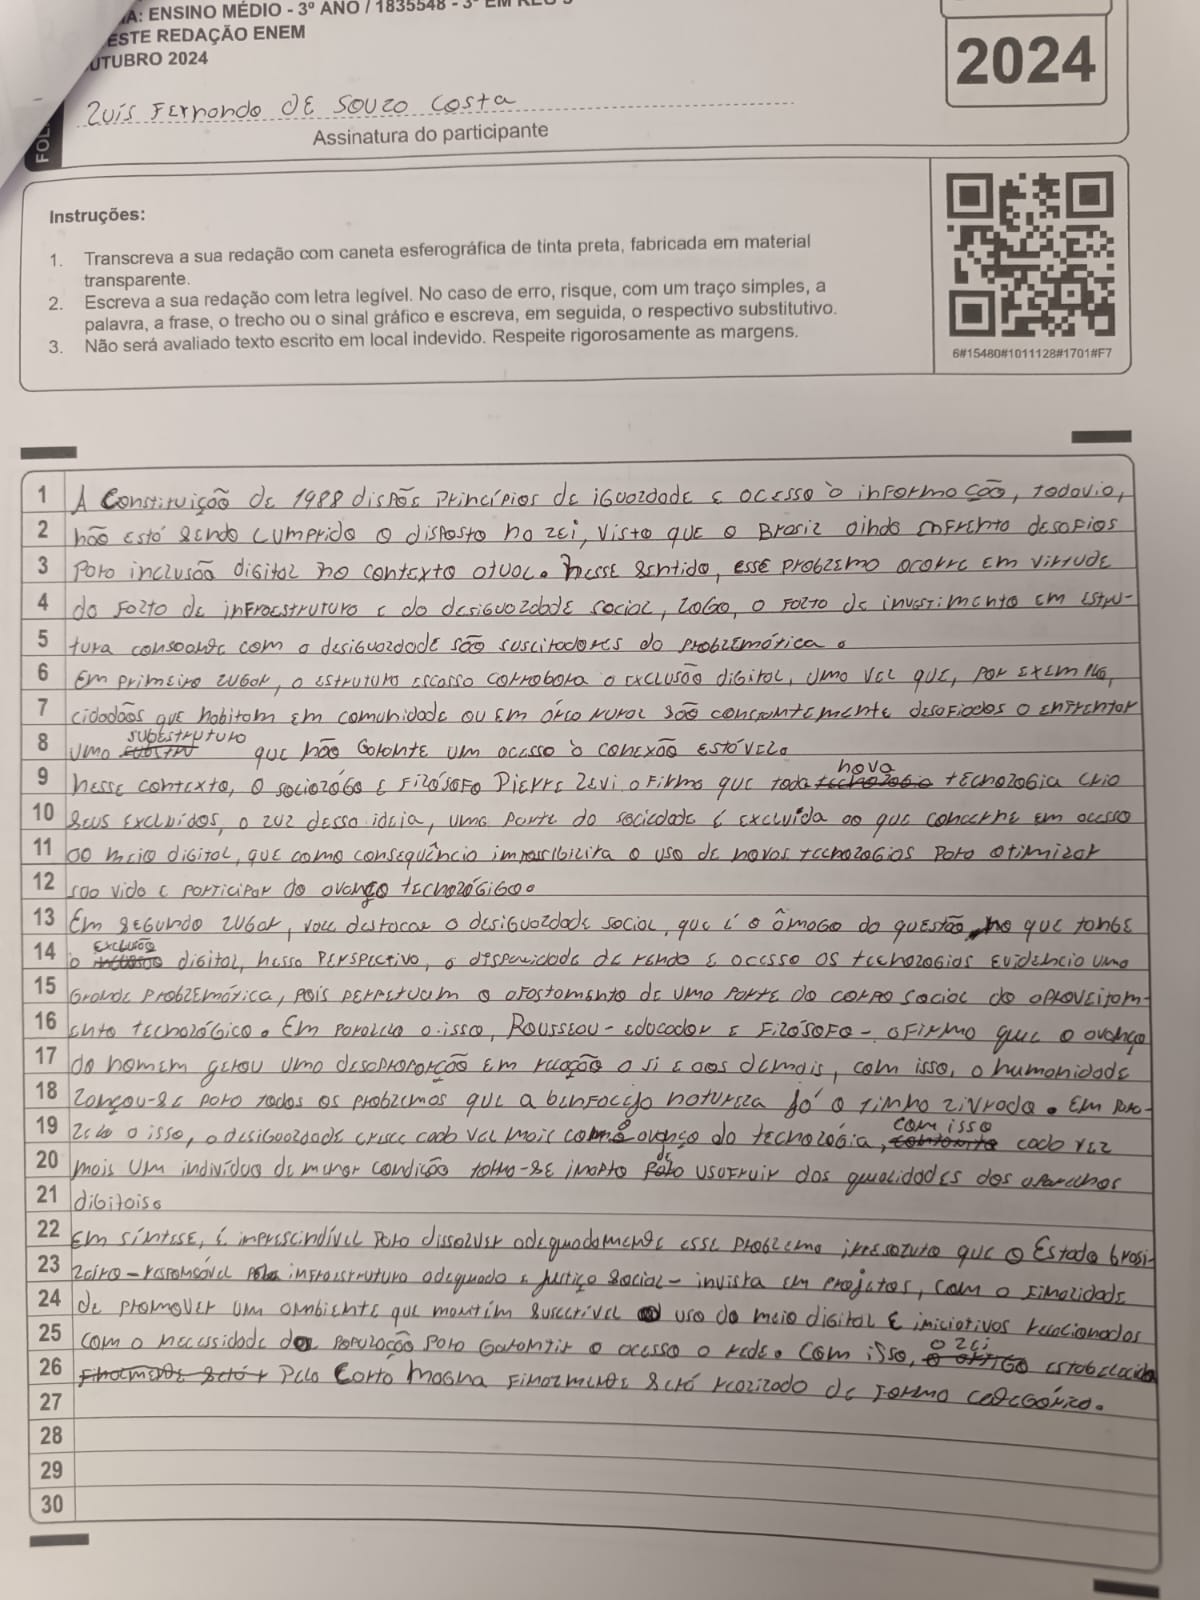 A: ENSINO MÉDIO - 3º ANO / 1835548 - 3ª EM REG
ESTE REDAÇÃO ENEM
UTUBRO 2024
2024
Luís Fernando de Souza Costa
Assinatura do participante
FOL
Instruções:
1. Transcreva a sua redação com caneta esferográfica de tinta preta, fabricada em material
transparente.
2. Escreva a sua redação com letra legível. No caso de erro, risque, com um traço simples, a
palavra, a frase, o trecho ou o sinal gráfico e escreva, em seguida, o respectivo substitutivo.
3. Não será avaliado texto escrito em local indevido. Respeite rigorosamente as margens.
6#15480#1011128#1701#F7
1 A Constituição de 1988 dispõs princípios de igualdade e acesso à informação, todavia,
2 não está sendo cumprido o disposto na lei, visto que o Brasil ainda enfrenta desafios
3 para inclusão digital no contexto atual. Nesse sentido, esse problema ocorre em virtude
4 da falta de infraestrutura e da desigualdade social, logo, a falta de investimento em estru-
5 tura consoante com a desigualdade são suscitadores da problemática.
6 Em primeiro lugar, a estrutura escassa corrobora a exclusão digital, uma vez que, por exemplo,
7 cidadãos que habitam em comunidade ou em área rural são constantemente desafiados a enfrentar
8 uma substrutura que não garante um acesso à conexão estável.
9 Nesse contexto, o sociológo e filósofo Pierre Levi afirma que toda nova tecnologia cria
10 seus excluídos, a luz dessa ideia, uma parte da sociedade é excluída ao que concerne em acesso
11 ao meio digital, que como consequência impossibilita o uso de novas tecnologias para otimizar
12 sao vida e participar do avanço tecnológigo.
13 Em segundo lugar, vale destacar a desigualdade social, que é o âmago da questão no que tange
14 a exclusão digital, nessa perspectiva, a disparidade de renda e acesso as tecnologias evidencia uma
15 grande problemática, pois perpetuam o afastamento de uma parte do corpo social do aproveitam-
16 ento tecnológico. Em paralelo a isso, Rousseau - educador e filósofo - afirma que o avanço
17 do homem gerou uma desproporção em relação a si e aos demais, com isso, a humanidade
18 lançou-se para todos os problemas que a benfoceja natureza já o tinha livrado. Em para-
19 lelo a isso, a desigualdade cresce cada vez mais com o avanço da tecnológia, com isso cada vez
20 mais um indivíduo de menor condição torna-se inapto de usufruir das qualidades dos aparelhos
21 digitais.
22 Em síntese, é imprescindível para dissolver adequadamente esse problema irresoluto que o Estado brasi-
23 leiro - responsável pela infraestrutura adequada e justiça social - invista em projetos, com a finalidade
24 de promover um ambiente que mantém suscetível o uso do meio digital e iniciativas relacionadas
25 com a necessidade da população para garantir o acesso a rede. Com isso, a lei estabelecida
26 pela Carta Magna finalmente será realizada de forma categórica.
27
28
29
30